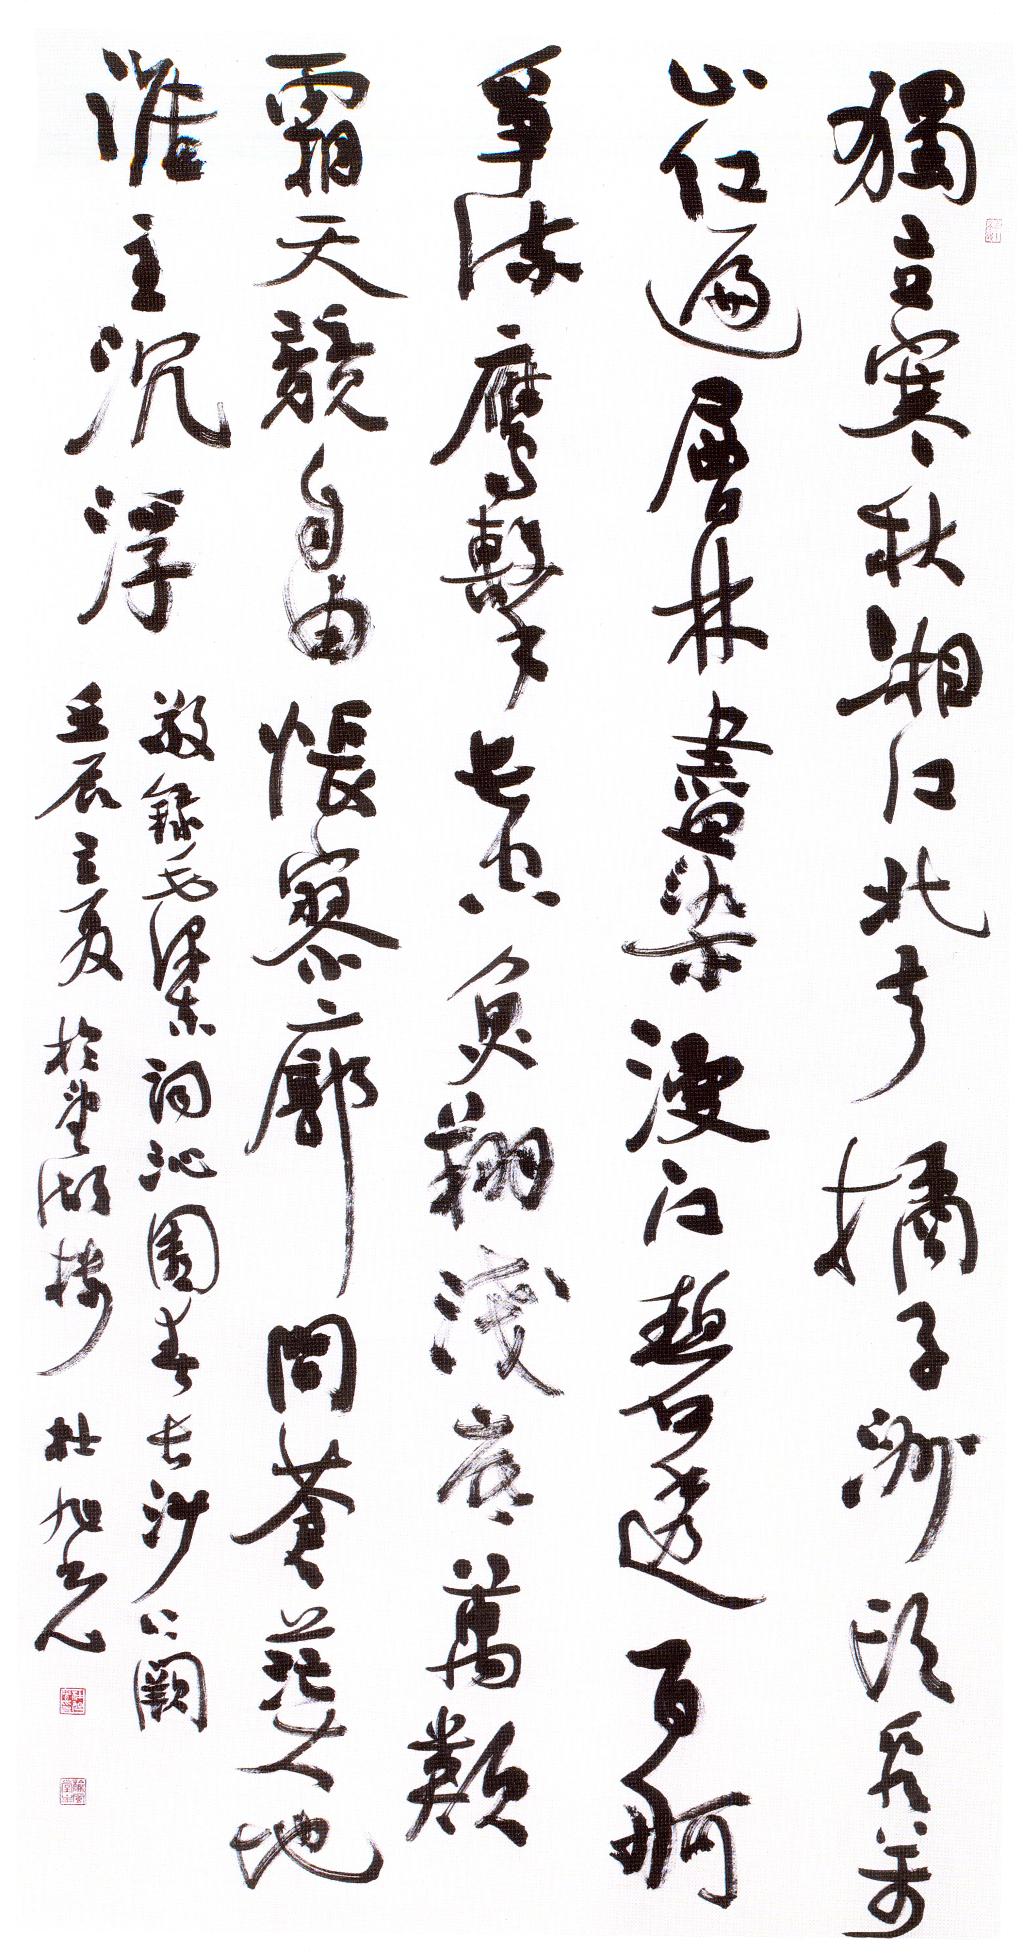 獨立寒秋湘江北去橘子洲頭看萬
山紅遍層林盡染漫江碧透百舸
爭流鷹擊長空魚翔淺底萬類
霜天競自由悵寥廓問蒼茫大地
誰主沉浮
敬錄毛澤東詞沁園春長沙上闋
壬辰立夏於望湖樓杜旭光